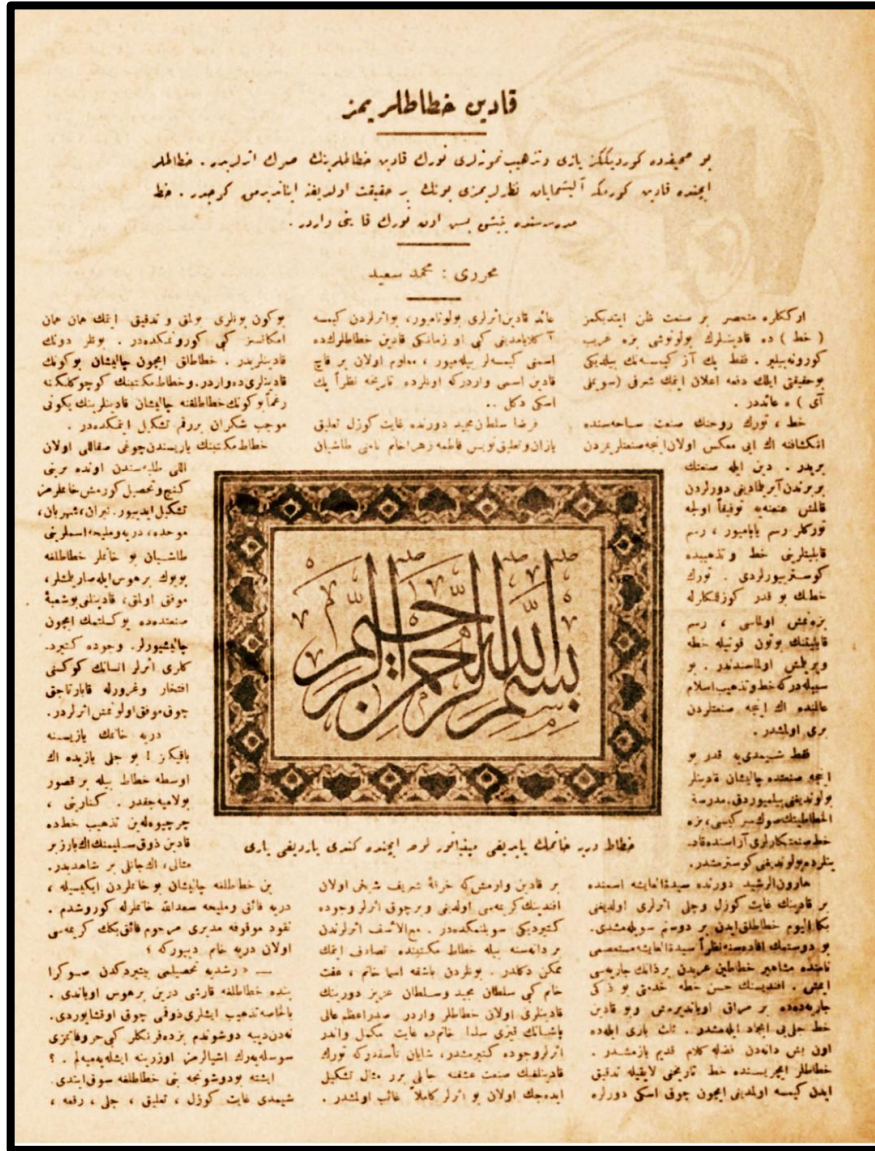 قادين خطاطلريمز
بو صحيفه‌ده كورديككز يازى وتذهيب نمونه‌لرى تورك قادين خطاطلرينك صوك اثرلريدر . خطاطلر
ايچنده قادين كورمكه آليشمايان نظرلريمزى بونك بر حقيقت اولديغنه ايناندیرمق كوجدر . خط
مدرسه‌سنده يتيشن اون تورك قادينى واردر .
محررى : محمد سعيد
ارككلره منحصر بر صنعت ظن ايتديكمز
( خط ) ده قادينلرك بولونوشى بزه غريب
كورونه‌بيلير . فقط پك آز كيمسه‌نك بيلديكى
بوحقيقتى ايلك دفعه اعلان ايتمك شرفى (سوسلى
آى ) ه عائددر .
خط ، تورك روحنك صنعت ساحه‌سنده
انكشافنه اك ايى معكس اولان انجه صنعتلرمزدن
بريدر . دين ايله صنعتك
بربرندن آيريلماديغى دورلردن
قالمش عنعنه‌يه توفيقاً اولجه
توركلر رسم ياپاميور ، رسم
قابليتلرينى خط و تذهيبده
كوستريبورلردى . تورك
خطنك بو قدر كوزللكلرله
بزنمش اولماسى ، رسم
قابليتنك بوتون قوتيله خطه
ويريلمش اولماسنددر . بو
سبيله‌دركه خط وتذهيب اسلام
عالمنده اك انجه صنعتلردن
برى اولمشدر .
فقط شيمدى‌يه قدر بو
انجه صنعتده چاليشان قادينلر
بولونديغنى بيلميوردق. مدرسة
الخطاطينك صوك سركيسى، بزه
خط صنعتكارلرى آراسنده قاد-
ينلرده بولونديغنى كوسترمشدر.
هارون‌الرشيد دورنده سيدةالعايشه اسمنده
بر قادينك غايت كوزل وجلى اثرلرى اولديغنى
بكا اليوم خطاطلق ايدن بر دوستم سويله‌مشدى.
بو دوستمك افاده‌سنه نظراً سيدةالعايشه مستعصمى
نامنده مشاهير خطاطين عربدن برذاتك جاريه‌سى
ايمش . افنديسنك حسن خطه خدمتى بو ذكى
جاريه‌ده‌ده بر مراق اوياندیرمش وبو قادين
خط جلى‌يى ايجاد ايله‌مشدر . ثلث يازى ايله‌ده
اون بش دانه‌دن فضله كلام قديم يازمشدر .
خطاطلر ايچريسنده خط تاريخنى لايقيله تدقيق
ايدن كيمسه اولمديغى ايچون چوق اسكى دورلره
عائد قادين اثرلرى بولونامیور، بو اثرلردن كيمسه
آكلايه‌مديغى كبى او زمانكى قادين خطاطلرك‌ده
اسمنى كيمسه‌لر بيله‌ميور ، معلوم اولان بر قاچ
قادين اسمى واردركه اونلرده تاريخه نظراً پك
اسكى دكل ..
فرضا سلطان مجيد دورنده غايت كوزل تعليق
يازان وتعليق‌نويس فاطمه زهرا خانم نامنى طاشيان
بِسْمِ اللهِ الرَّحْمٰنِ الرَّحِيمِ
خطاط دريه خانمك ياپديغى مينياتور لوحه ايچنده كندى يازديغى يازى
بر قادين وارمش كه خزانهٔ شريف شيخى اولان
افندينك كريمه‌سى اولديغى وبرچوق اثرلر وجوده
كتيرديكى سويلنمكده‌در . مع‌الاسف اثرلرندن
بر دانه‌سنه بيله خطاط مكتبنده تصادف ايتمك
ممكن دكلدر . بونلردن باشقه اسما خانم ، عفت
خانم كبى سلطان مجيد وسلطان عزيز دورينك
قادينلرى اولان خطاطلر واردر. صدراعظم عالى
پاشانك قيزى سلما خانم‌ده غايت مكمل واندر
اثرلر وجوده كتيرمشدر، شايان تأسفدركه تورك
قادينلغنك صنعت عشقنه جانلى برر مثال تشكيل
ايده‌جك اولان بو اثرلر كاملاً غائب اولمشدر .
بوكون بونلرى بولمق و تدقيق ايتمك همان همان
امكانسز كبى كورونمكده‌در . بونلر دونك
قادينلريدر . خطاطلق ايچون چاليشان بوكونك
قادينلرى‌ده واردر. وخطاط مكتبنك كوچوكلكنه
رغماً بوكونك خطاطلغنه چاليشان قادينلرينك يكونى
موجب شكران بررقم تشكيل ايتمكده‌در .
خطاط مكتبنك ياريسندن چوغى صقاللى اولان
اللى طلبه‌سندن اونده برينى
كنج وتحصيل كورمش خانملرمز
تشكيل ايديیور. نيران، شهربان،
موحده، دريه ومليحه اسملرينى
طاشيان بو خانملر خطاطلغه
بويوك بر هوس ايله صاريلمشلر،
موفق اولمق، قادينلغى بوشعبهٔ
صنعتده‌ده يوكسلتمك ايچون
چاليشيورلر. وجوده كتيرد-
كلرى اثرلر انسانك كوكسنى
افتخار وغرورله قابارتاجق
چوق موفق اولونمش اثرلردر.
دريه خانمك يازيسنه
باقيكز ! بو جلى يازيده اك
اوسطه خطاط بيله بر قصور
بولاميه‌جقدر . كنارنى ،
چرچيوه‌له‌ين تذهيب خط‌ده
قادين ذوق سليمنك اك بارز بر
مثالى، اك جانلى بر شاهديدر.
بن خطاطلغه چاليشان بو خانملردن ايكيسيله ،
دريه فائق ومليحه سعدالله خانملرله كوروشدم .
نقود موقوفه مديرى مرحوم فائق بكك كريمه‌سى
اولان دريه خانم ديیوركه ؛
— « رشديه تحصيلمى بيتيردكدن صوكرا
بنده خطاطلغه قارشى درين برهوس اوياندى .
بالخاصه تذهيب ايشلرى ذوقمى چوق اوقشايوردى.
نه‌دن دييه دوشوندم بزده فرنكلر كبى حروفاتمزى
سوسله‌يه‌رك اشيالرمز اوزرينه ايشله‌يه‌ميه‌لم . ؟
ايشته بودوشونجه بنى خطاطلغه سوق ايتدى.
شيمدى غايت كوزل ، تعليق ، جلى ، رقعه ،